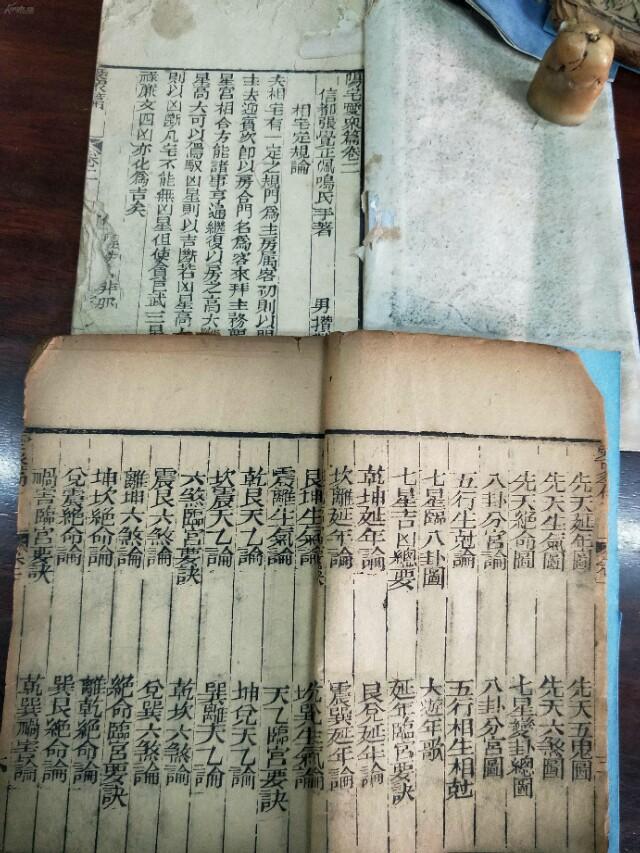 陽宅愛衆篇卷二
信都張覺正佩鳴氏手著 男攢
相宅定規論
夫相宅有一定之規門為主房為客初則以門
主去迎賓次即以房合門名為客來拜主務
星宮相合方能諸事亨通繼復以房之高大
星高大可以駕馭凶星則以吉斷若凶星高大
則以凶斷凡宅不能無凶星但使貪巨武三星
祿廉文四凶亦化為吉矣
衆篇 卷二
先天延年圖 先天五鬼圖
先天生氣圖 先天六煞圖
先天絕命圖 七星變卦總圖
八卦分宮論 八卦分宮圖
五行生尅論 五行相生相尅
七星臨八卦圖 大遊年歌
七星吉凶總要 延年臨宮要訣
乾坤延年論 艮兌延年論
坎離延年論 震巽延年論
艮坤生氣論 坎巽生氣論
震離生氣論 天乙臨宮要訣
乾艮天乙論 坤兌天乙論
坎震天乙論 巽離天乙論
六煞臨宮要訣 乾坎六煞論
震艮六煞論 兌巽六煞論
離坤六煞論 絕命臨宮要訣
坤坎絕命論 離乾絕命論
兌震絕命論 巽艮絕命論
禍害臨宮要訣 乾巽禍害論